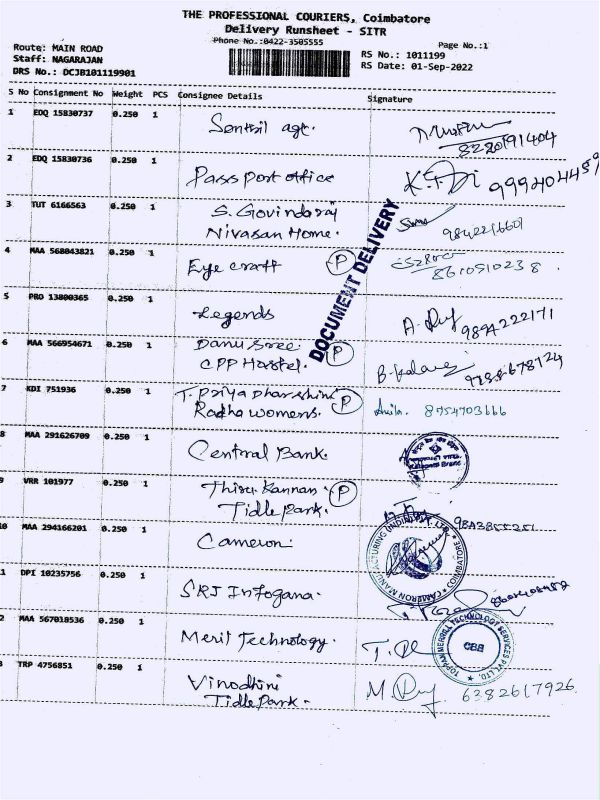 THE PROFESSIONAL COURIERS, Coimbatore
Delivery Runsheet - SITR
Phone No.:0422-3505555
Page No.:1
Route: MAIN ROAD
Staff: NAGARAJAN
DRS No.: DCJB101119901
RS No.: 1011199
RS Date: 01-Sep-2022
S No Consignment No Weight PCS Consignee Details Signature
1 EDQ 15830737 0.250 1 Senthil agt. 8220191404
2 EDQ 15830736 0.250 1 Pass port office
3 TUT 6166563 0.250 1 S. Govindaraj
Nivasan Home. 9842216601
4 MAA 568043821 0.250 1 Eye craft P 8610510238
5 PRO 13800365 0.250 1 Legends 9894222171
DOCUMENT DELIVERY
6 MAA 566954671 0.250 1 Danu Sree P
CPP Hostel.
7 KDI 751936 0.250 1 T. Priya Dharshini P
Radha womens. 8754703666
8 MAA 291626709 0.250 1 Central Bank.
9 VRR 101977 0.250 1 Thiru Kannan. P
Tidle Park.
10 MAA 294166201 0.250 1 Cameron.
CAMERON MANUFACTURING (INDIA) PVT. LTD. COIMBATORE
1 DPI 10235756 0.250 1 SRJ Infogana.
2 MAA 567018536 0.250 1 Merit Technology.
TOPPAN MERRILL TECHNOLOGY SERVICES PVT. LTD.
CBE
3 TRP 4756851 0.250 1 Vinodhini 6382617926
Tidle Park.